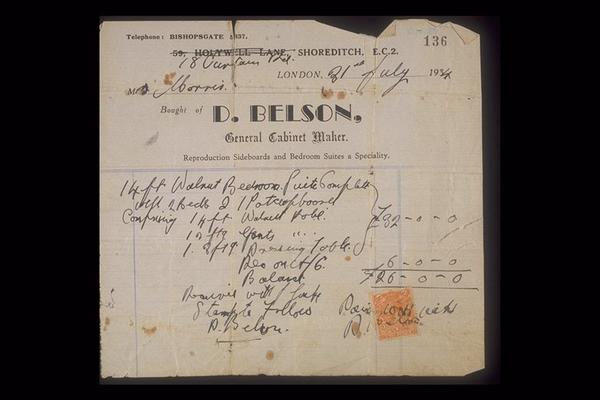 Telephone: BISHOPSGATE 1837.
136
59, HOLYWELL LANE, SHOREDITCH, E.C.2.
18 Curtain Rd.
LONDON, 31st July 1934
M Morris.
Bought of D. BELSON,
General Cabinet Maker.
Reproduction Sideboards and Bedroom Suites a Speciality.
1 4 ft Walnut Bedroom Suite Complete
with 2 Beds & 1 Pot cupboard
Comprising 1 4 ft Walnut Robe.
£32-0-0
1 3 ft Gents " "
1. 3 ft Dressing Table.
6-0-0
Balance
£26-0-0
Received with
Stamp to follow
D. Belson.
D. Belson.